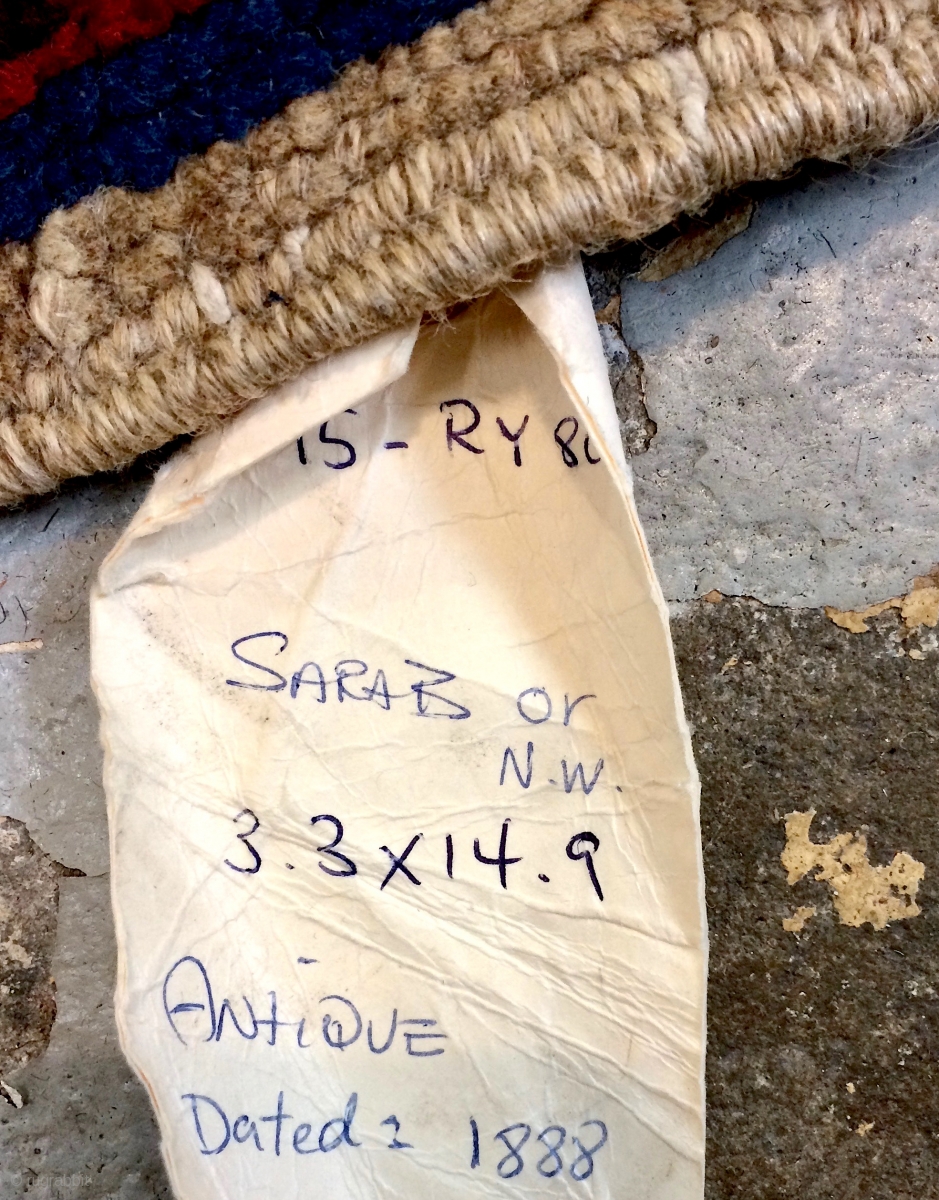 15 - RY 80
SARAB or
N.W.
3.3 X 14.9
ANTiQUE
Dated: 1888
© rugrabbit